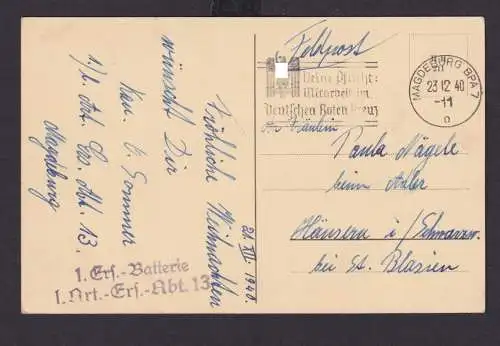 Fröhliche Weihnachten
wünscht Dir
Kan. E. Sommer
1./l. Art. Ers. Abt. 13.
Magdeburg
21. XII. 1940.
1. Ers.-Batterie
l. Art.-Ers.-Abt. 13
Feldpost
Deine Pflicht:
Mitarbeit im
Deutschen Roten Kreuz
MAGDEBURG BPA 7
23.12.40
-11
o
An Fräulein
Paula Nägele
beim Adler
Häusern i/Schwarzw.
bei St. Blasien